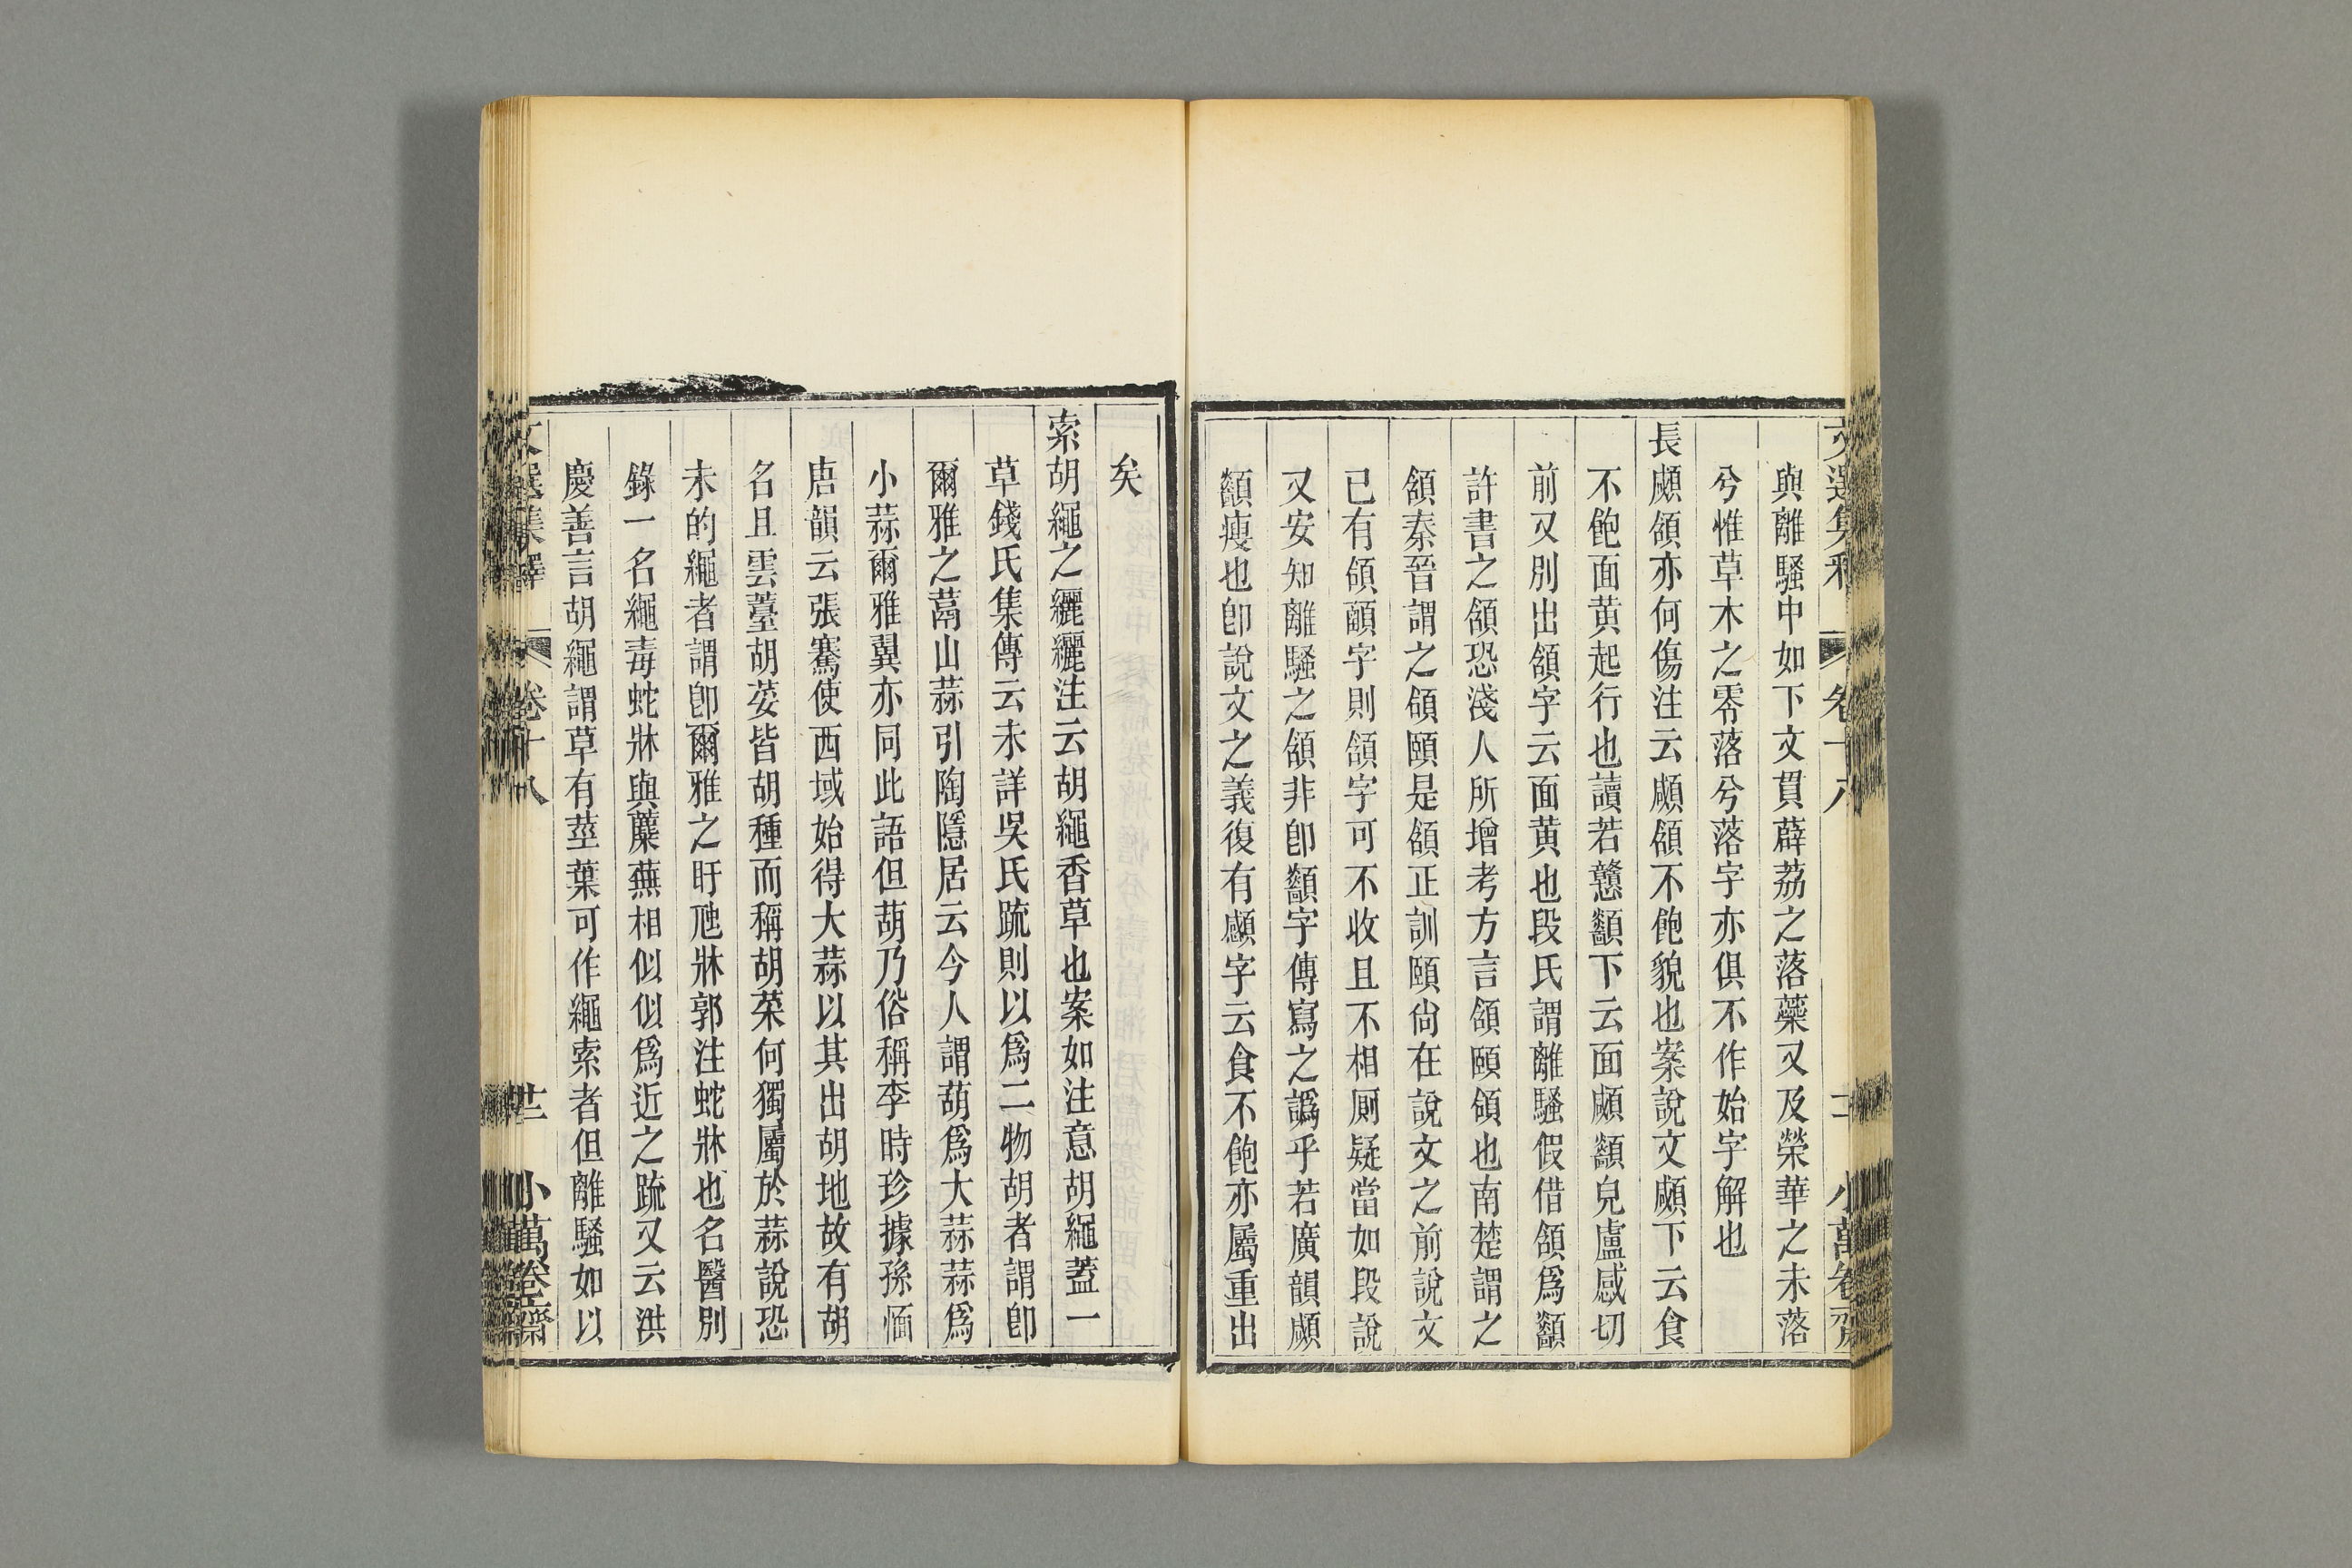 與離騷中如下文貫薜荔之落蘂又及榮華之未落
兮惟草木之零落兮落字亦俱不作始字解也
長顑頷亦何傷注云顑頷不飽貌也案說文顑下云食
不飽面黄起行也讀若戇顲下云面顑顲皃盧感切
前又別出頷字云面黄也段氏謂離騷假借頷爲顲
許書之頷恐淺人所增考方言頷頤領也南楚謂之
頷秦晉謂之頜頤是頷正訓頤尙在說文之前說文
已有頜顄字則頷字可不收且不相厠疑當如段說
又安知離騷之頷非卽顲字傳寫之譌乎若廣韻顑
顲瘦也卽說文之義復有顣字云食不飽亦屬重出
矣
索胡繩之纚纚注云胡繩香草也案如注意胡繩蓋一
草錢氏集傳云未詳吳氏疏則以爲二物胡者謂卽
爾雅之蒚山蒜引陶隱居云今人謂葫爲大蒜蒜爲
小蒜爾雅翼亦同此語但葫乃俗稱李時珍據孫愐
唐韻云張騫使西域始得大蒜以其出胡地故有胡
名且雲薹胡荽皆胡種而稱胡菜何獨屬於蒜說恐
未的繩者謂卽爾雅之盱虺牀郭注蛇牀也名醫別
錄一名繩毒蛇牀與蘪蕪相似似爲近之疏又云洪
慶善言胡繩謂草有莖葉可作繩索者但離騷如以
文選集釋 卷十八 廿二 小萬卷齋